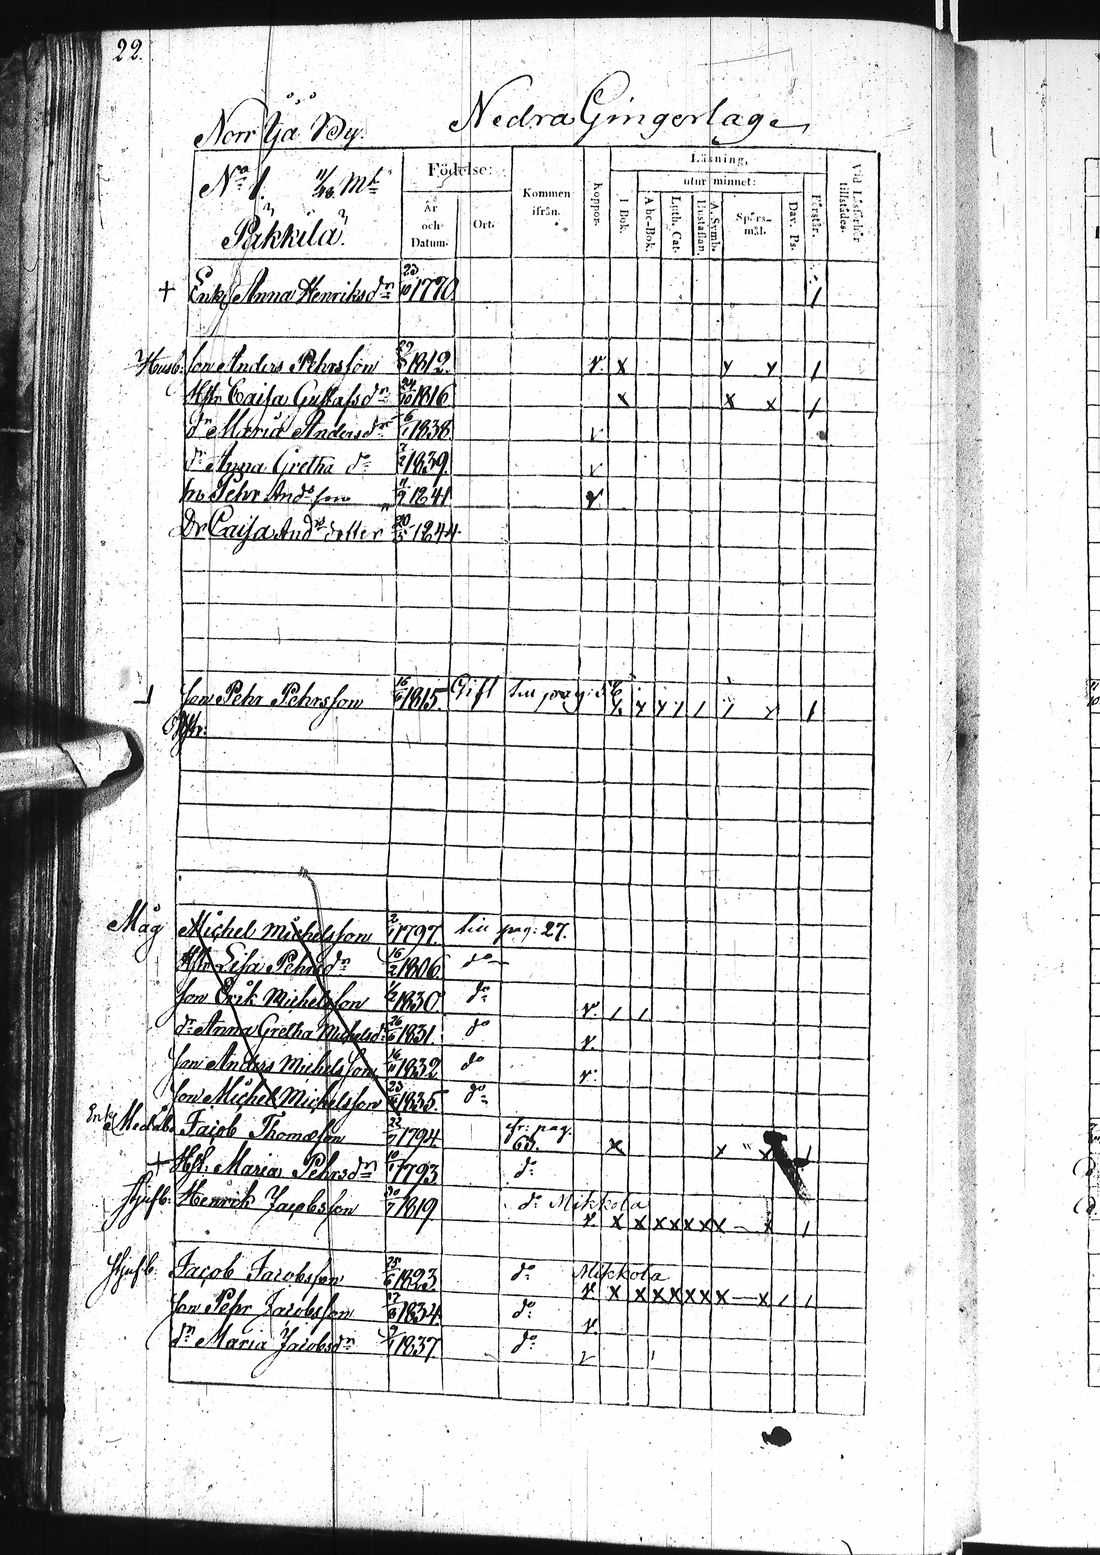 22.
Norr Yjä By. Nedra Gingerlage
No 1. 11/48 Mtl
Päkkilä.
Födelse:
År och Datum.
Ort.
Kommen ifrån.
Koppor.
Läsning,
utur minnet:
I Bok.
Abc-Bok.
Luth. Cat.
Hustaflan.
A. Symb.
Spörs-mål.
Dav. Ps.
Förstår.
Vid Läsförhör tillstädes.
+ Enk. Anna Henriksdr 23/10 1770
Husb. Son Anders Pehrsson 1812. v. x
Hstr Caisa Gustafsdr 24/10 1816 x x x
dr Maria Andersdr 1838. v
dr Anna Gretha do 1839. v
son Pehr Andsson 1841 v
Dr Caisa Andsdotter 20/5 1844.
Son Pehr Pehrsson 16/6 1815. Gift till pag: 56
Hstr:
Måg Michel Michelsson 1797. till pag: 27.
Hstr Lisa Pehrsdr 16/2 1806 do
Son Erik Michelsson 1830. do v. 1 1
dr Anna Gretha Michelsdr 26 1831. do v.
Son Anders Michelsson 16 1832 do v.
Son Michel Michelsson 23 1835. do
Jacob Thomasson 22 1794 fr: pag. 63. x
+ Hst. Maria Pehrsdr 10 1793 do
Henrik Jacobsson 30/7 1819 do Mikkola v. x x x x x x x – x 1
Jacob Jacobsson 25/6 1823 do Mikkola v. x x x x x x x – x 1 1
Son Pehr Jacobsson 27 1834. do v.
dr Maria Jacobsdr 1837. do v